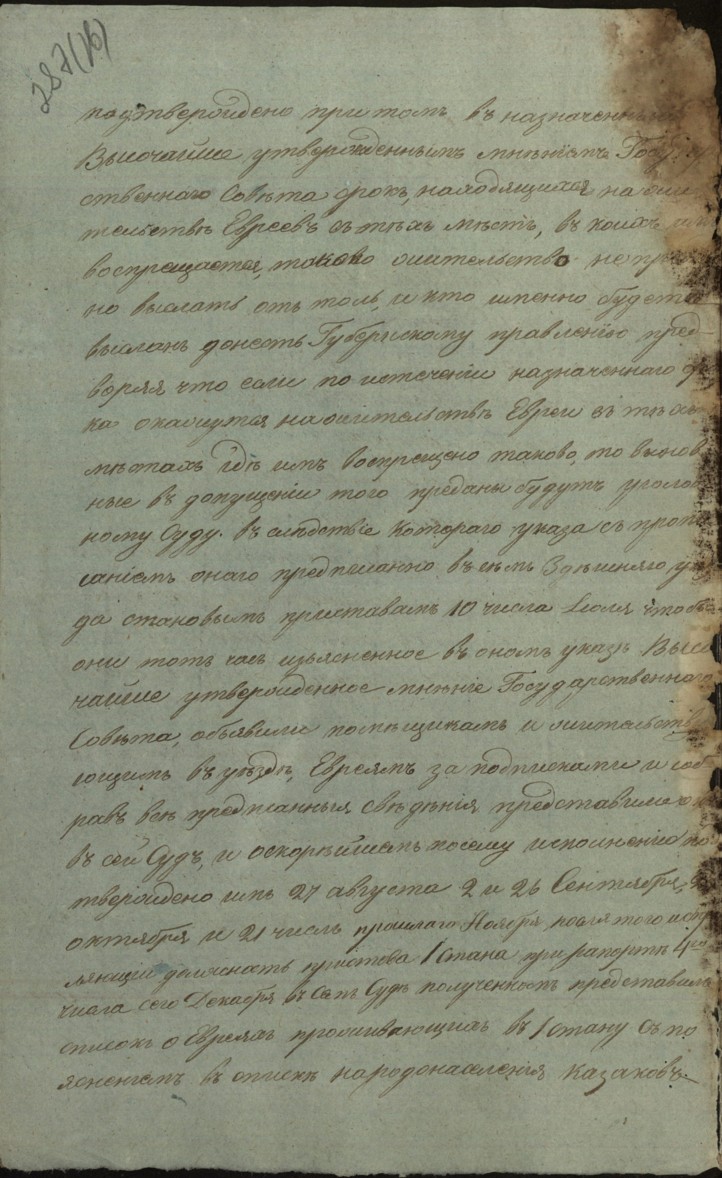 287(16)
подтверждено притомъ въ назначенный
Высочайше утвержденнымъ мнѣніемъ Госу
ственнаго Совѣта срокъ, находящихся на жи
тельствѣ Евреевъ въ тѣхъ мѣстъ, въ коихъ имъ
воспрещается таково жительство
но выслать отъ толь, и кто именно будетъ
высланъ донесть Губернскому правленію пред-
воряя что если по истеченіи назначеннаго
ка окажутся на жительствѣ Евреи въ тѣхъ
мѣстахъ гдѣ имъ воспрещено таково, то винов
ные въ допущеніи того преданы будутъ уголов
ному Суду. въ слѣдствіе котораго указа съ пропи
саніемъ онаго предписанно всѣмъ Здѣшняго уѣ
да становымъ приставамъ 10 числа Іюля чтобы
они тотъ часъ изъясненное въ ономъ указѣ Высо
чайше утвержденное мнѣніе Государственнаго
Совѣта, объявили помѣщикамъ и жительству
ющимъ въ уѣздѣ, Евреямъ за подписками и соб
равъ всѣ предписанныя свѣдѣнія представили
въ сей Судъ, и оскорѣйшемъ посему исполненію под
тверждено имъ 27 августа 2 и 26 Сентября,
октября и 21 числъ прошлаго Ноября, послѣ того исправ
ляющій должность пристава 1 Стана при рапортѣ 4го
числа сего Декабря въ семъ Судѣ полученномъ представилъ
списокъ о Евреяхъ проживающихъ въ 1 стану съ по
ясненіемъ въ спискѣ народонаселенія казаковъ